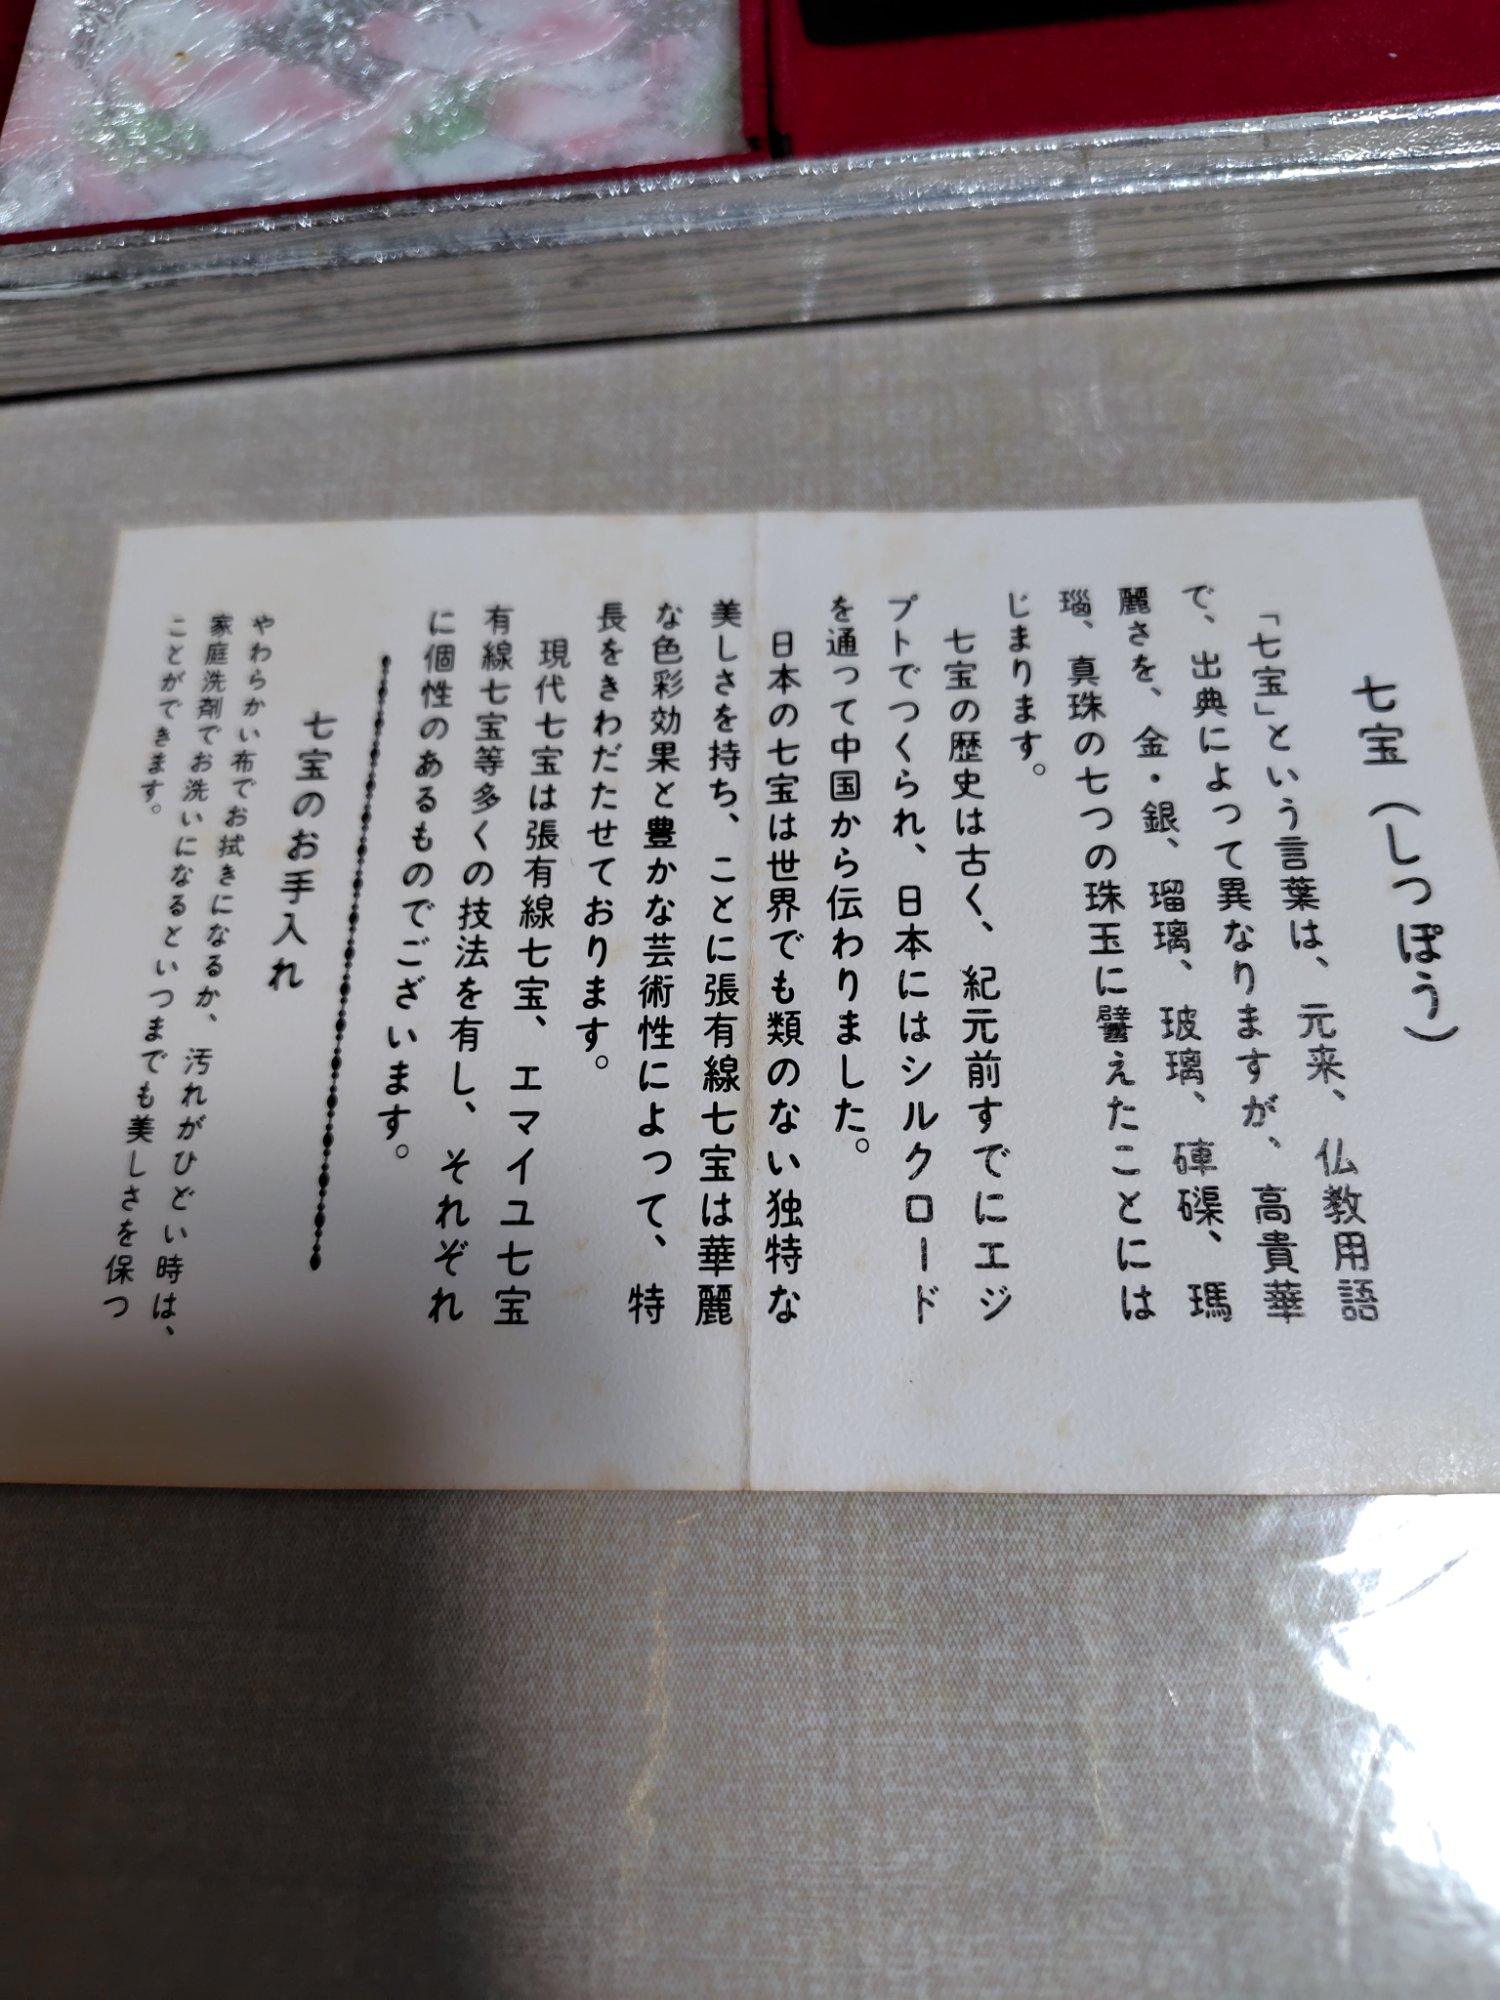 七宝（しっぽう）
「七宝」という言葉は、元来、仏教用語
で、出典によって異なりますが、高貴華
麗さを、金・銀、瑠璃、玻璃、硨磲、瑪
瑙、真珠の七つの珠玉に譬えたことには
じまります。
七宝の歴史は古く、紀元前すでにエジ
プトでつくられ、日本にはシルクロード
を通って中国から伝わりました。
日本の七宝は世界でも類のない独特な
美しさを持ち、ことに張有線七宝は華麗
な色彩効果と豊かな芸術性によって、特
長をきわだたせております。
現代七宝は張有線七宝、エマイユ七宝
有線七宝等多くの技法を有し、それぞれ
に個性のあるものでございます。
七宝のお手入れ
やわらかい布でお拭きになるか、汚れがひどい時は、
家庭洗剤でお洗いになるといつまでも美しさを保つ
ことができます。